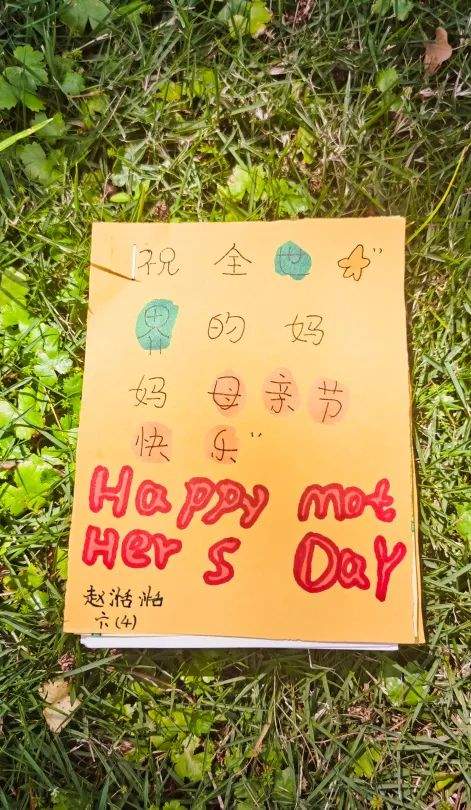 祝全世
界的妈
妈母亲节
快乐
Happy mot
Her s Day
赵湉湉
六(4)